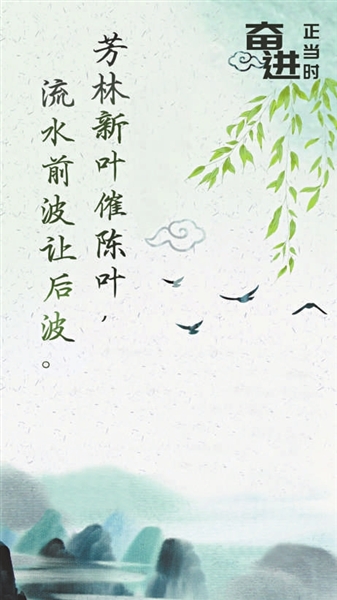 奋进
正当时
芳林新叶催陈叶，
流水前波让后波。